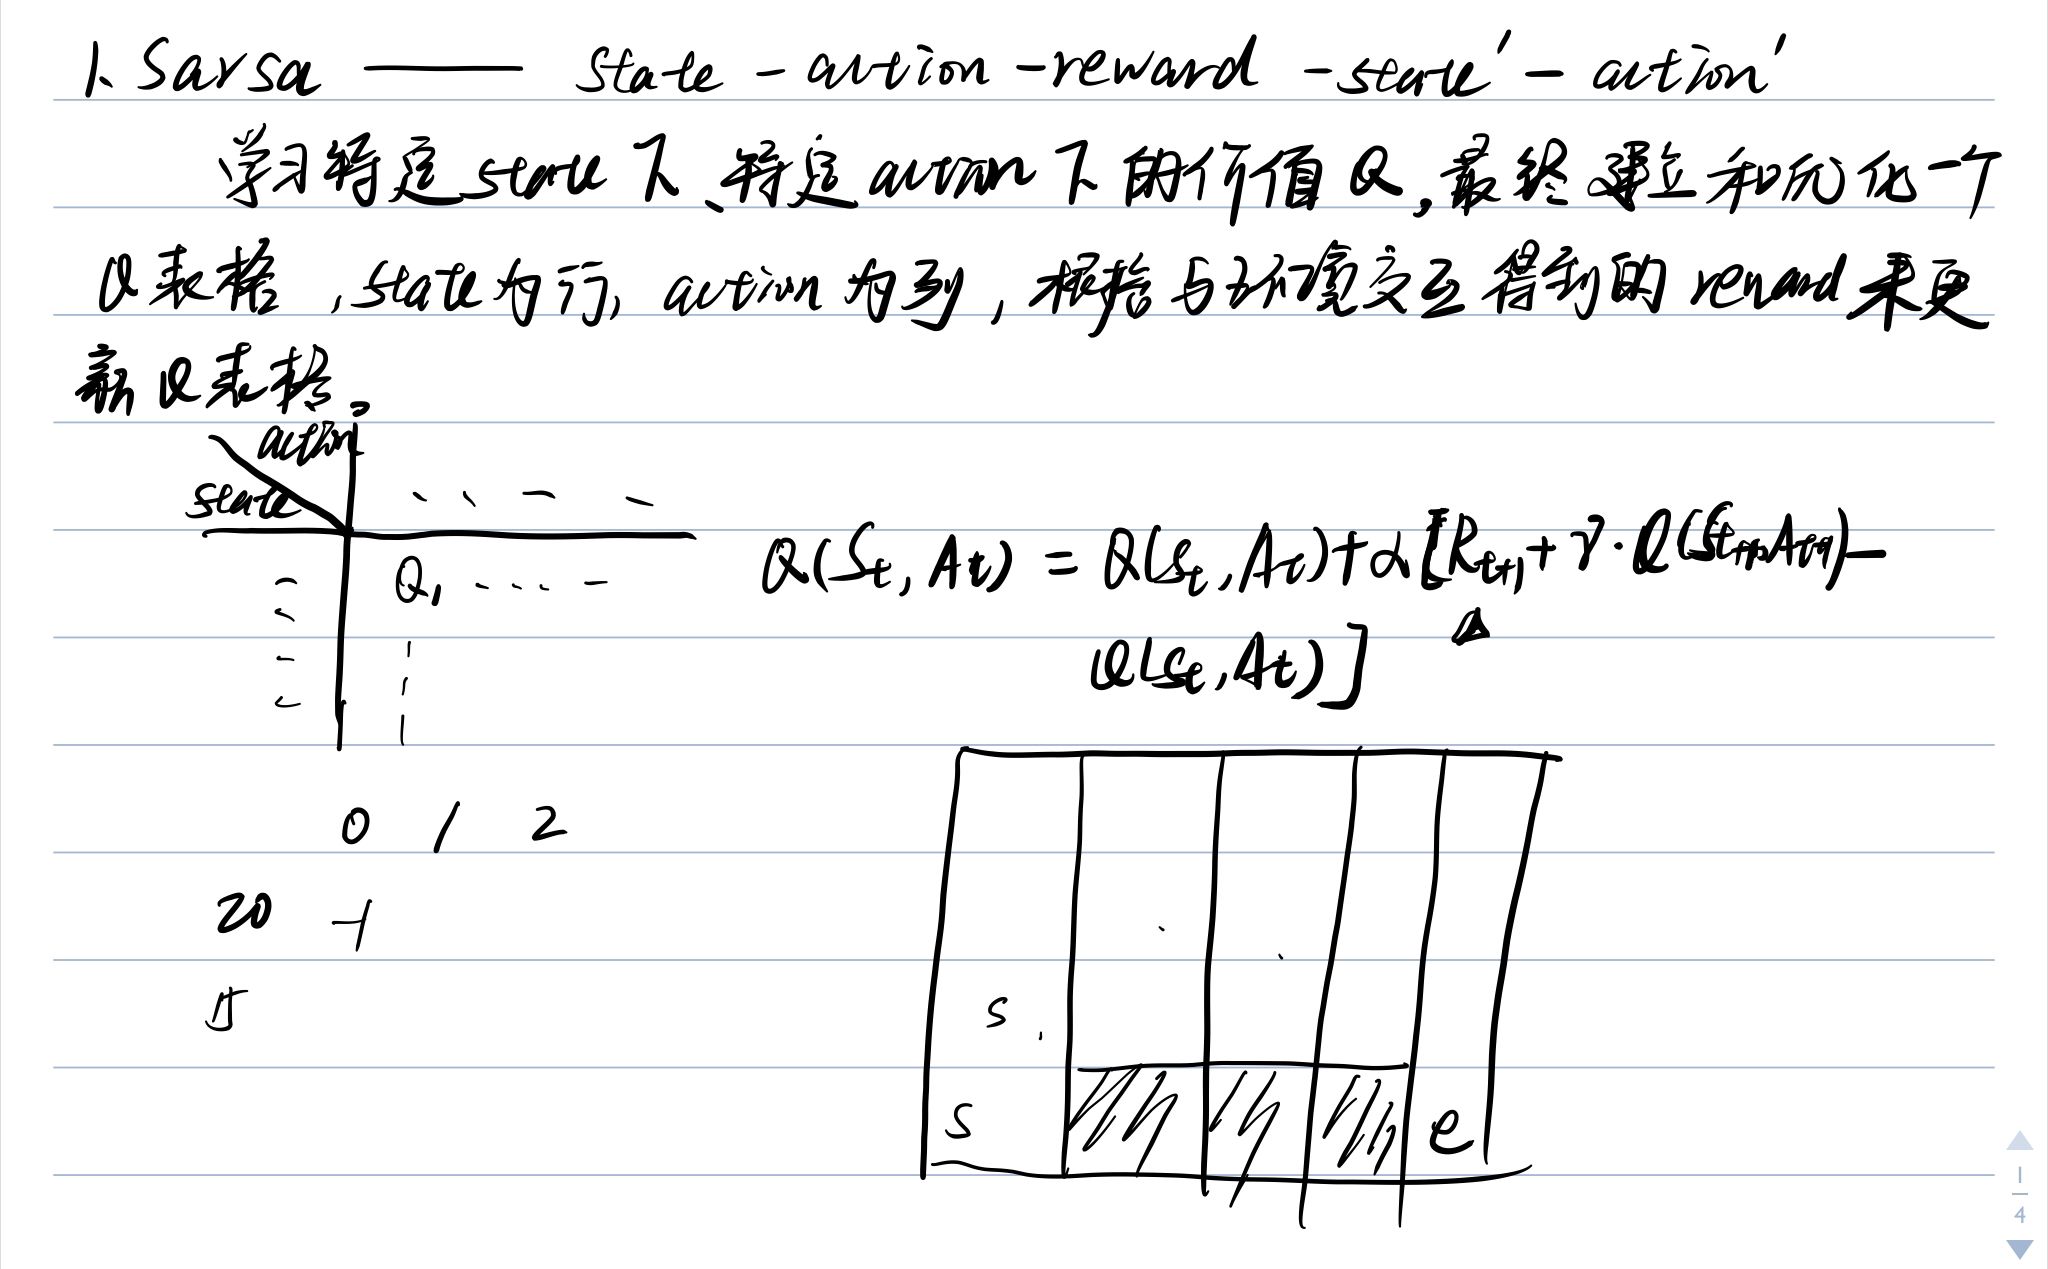 1、Sarsa —— state - action - reward - state' - action'
学习特定state下、特定action下的价值Q,最终建立和优化一个
Q表格,state为行,action为列,根据与环境交互得到的reward来更
新Q表格。
action
state
Q1
Q(St, At) = Q(St, At) + α[Rt+1 + γ·Q(St+1, At+1) -
Q(St, At)]
0 1 2
20 -1
15
s
s
e
1
4